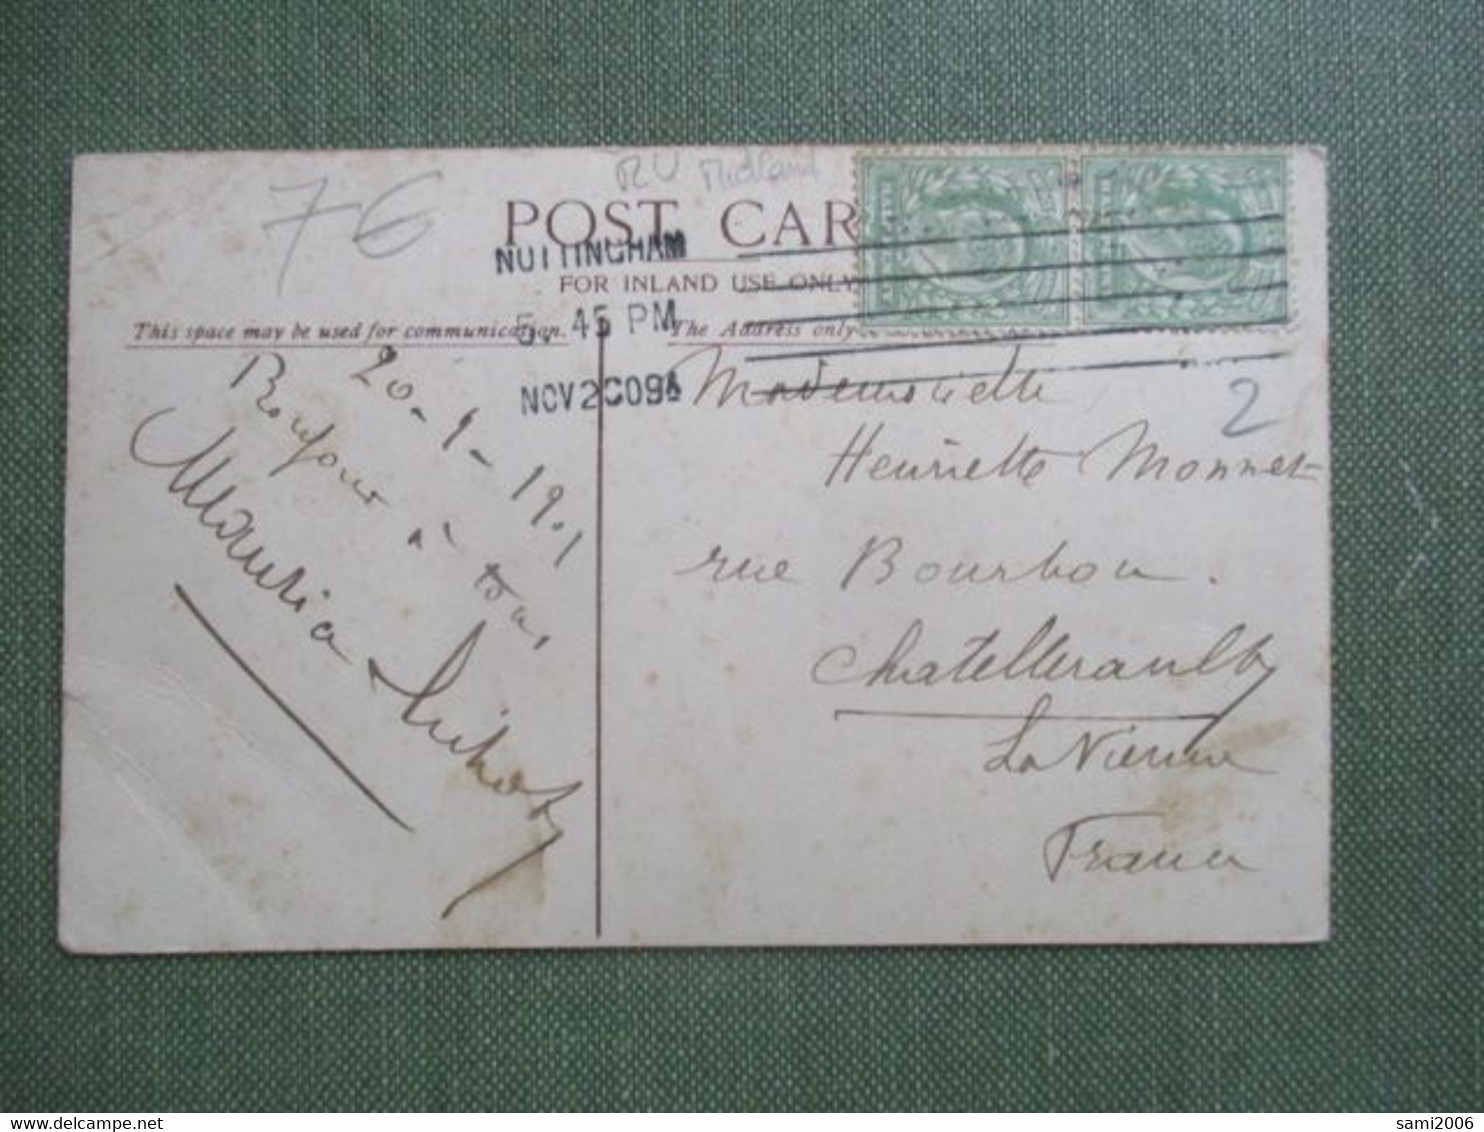 RU Midland
7€
POST CAR
NOTTINGHAM
FOR INLAND USE ONLY
5. 45 PM
This space may be used for communication.
The Address only
NOV 2 09
2
20-9-19.1
Bonjour
à tous
Mauricia
Mademoiselle
Henriette Monnet
rue Bourbon.
Chatellerault
La Vienne
France
sami2006